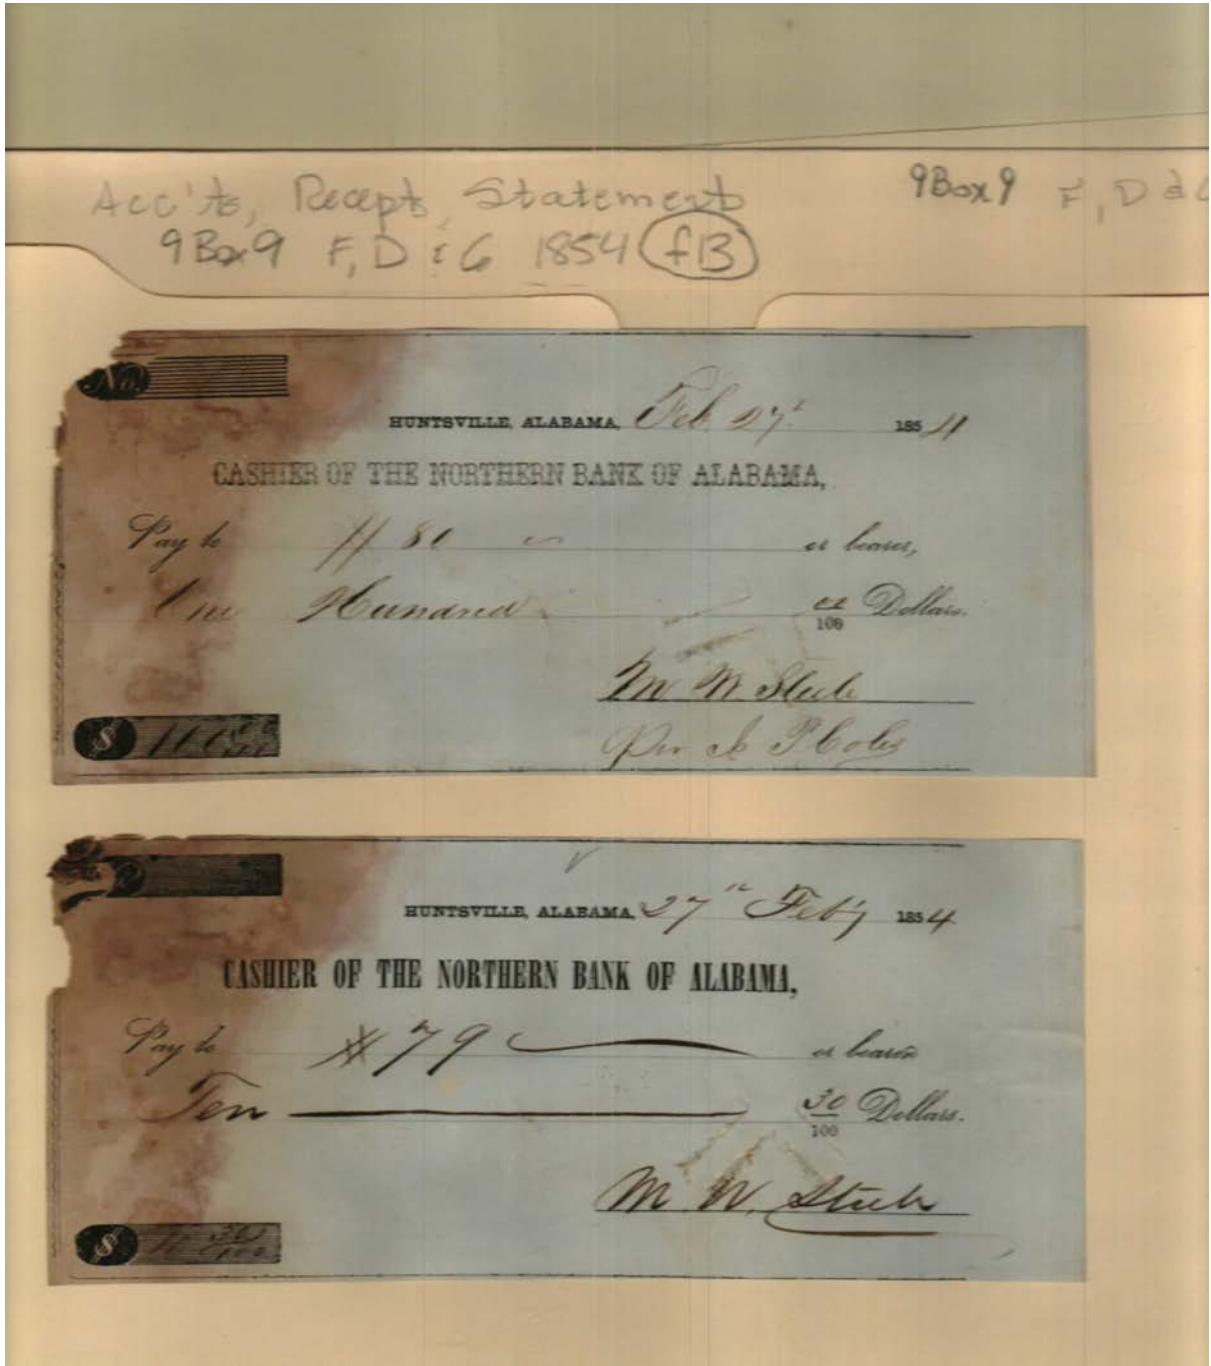 Acc'ts, Recepts, Statement
9Box9 F, D & G 1854 f13
9Box9 F, D & G
No.
HUNTSVILLE, ALABAMA, Feb 27th 1854
CASHIER OF THE NORTHERN BANK OF ALABAMA,
Pay to # 80 or bearer,
One Hundred 00/100 Dollars.
M W. Steele
Per I. P. Coles
$ 100 00/100
HUNTSVILLE, ALABAMA, 27th Feb'y 1854
CASHIER OF THE NORTHERN BANK OF ALABAMA,
Pay to # 79 or bearer
Ten 30/100 Dollars.
M. W. Steele
$ 10 30/100